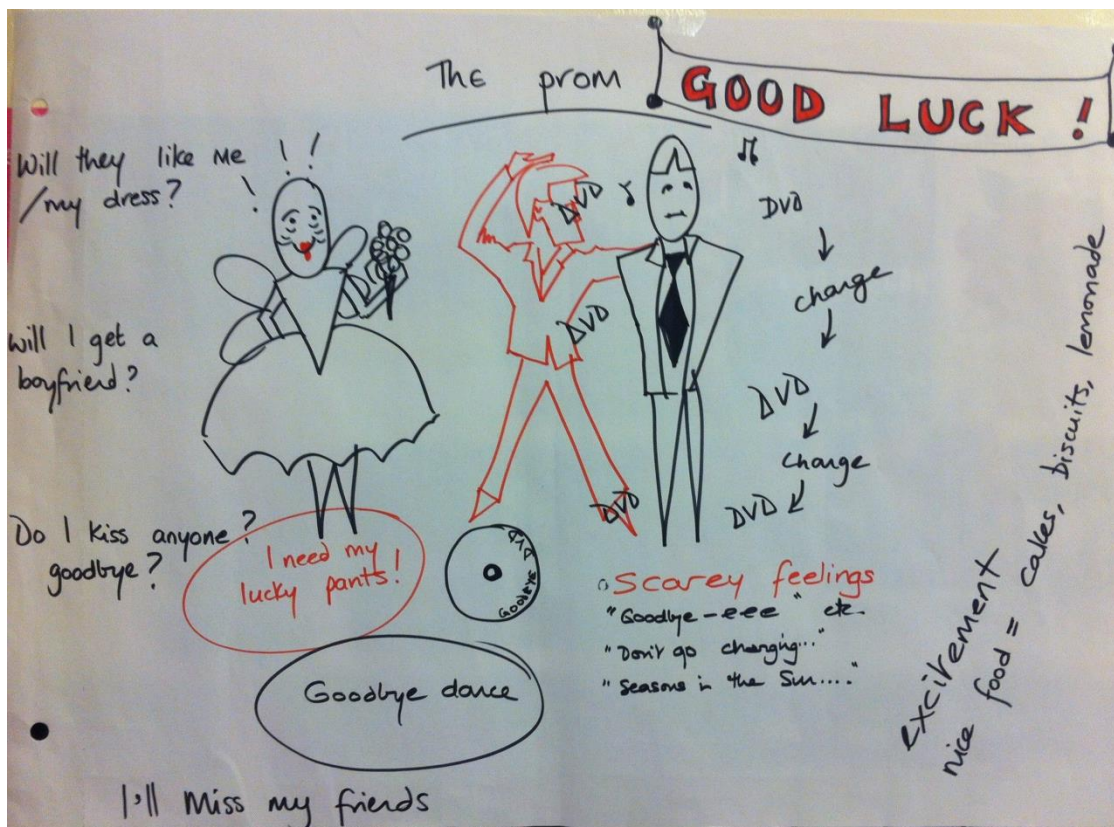 The prom
GOOD LUCK !
Will they like me
/my dress?
Will I get a
boyfriend?
Do I kiss anyone?
goodbye?
I need my
lucky pants!
GOODBYE DVD
Goodbye dance
I'll miss my friends
DVD
DVD
DVD
DVD
change
DVD
change
DVD
Scarey feelings
"Goodbye-eee" etc.
"Don't go changing..."
"Seasons in the Sun...."
excitement
nice food = cakes, biscuits, lemonade